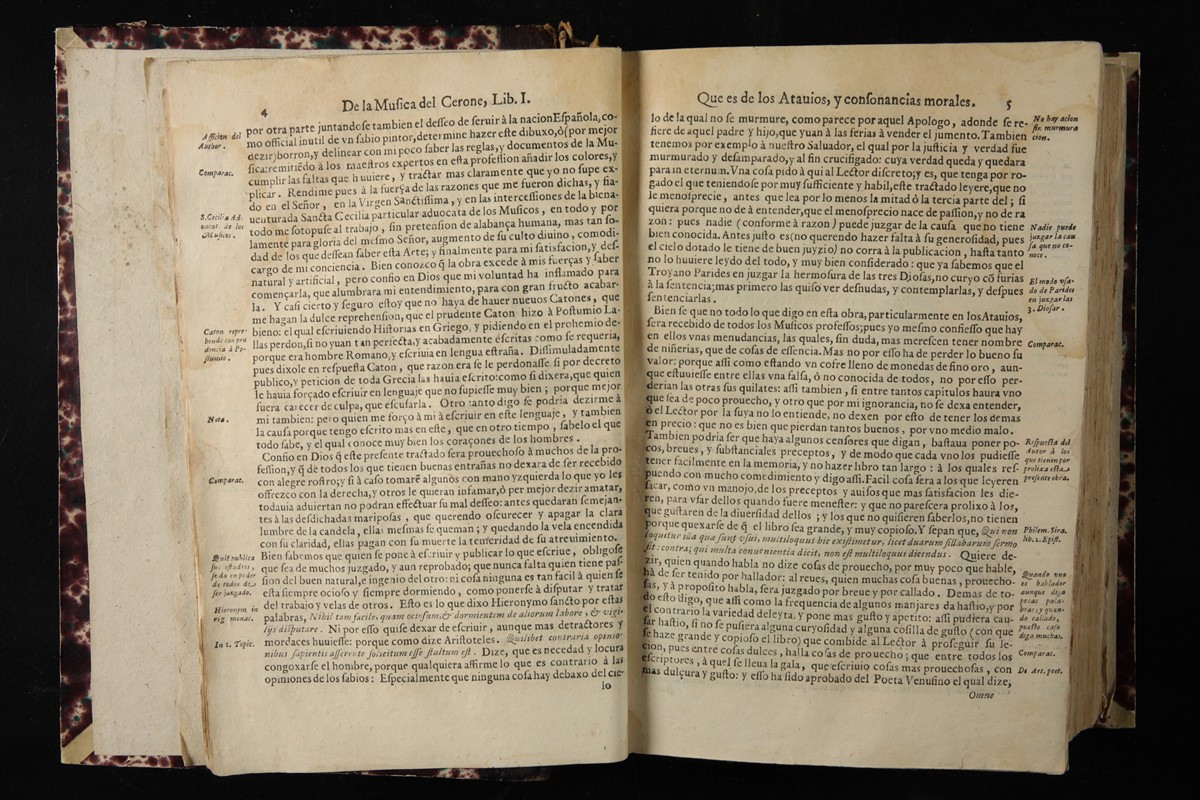 4
De la Musica del Cerone, Lib. I.
Afficion del
Author.
Comparac.
S. Cecilia Ad-
uocat. de los
Musicos.
Caton repre-
hende con pru
dencia à Po-
stumio.
Nota.
Comparac.
Quiẽ publica
sus estudios,
se da en poder
de todos de
ser juzgado.
Hieronym. in
reg. monac.
In 1. Topic.
por otra parte juntandose tambien el desseo de seruir à la nacion Española, co-
mo official inutil de vn sabio pintor, determine hazer este dibuxo, ò (por mejor
dezir) borron, y delinear con mi poco saber las reglas, y documentos de la Mu-
sica: remitiẽdo à los maestros expertos en esta profession añadir los colores, y
cumplir las faltas que huuiere, y tractar mas claramente que yo no supe ex-
plicar. Rendime pues à la fuerça de las razones que me fueron dichas, y fia-
do en el Señor, en la Virgen Sanctissima, y en las intercessiones de la biena-
uenturada Sancta Cecilia particular aduocata de los Musicos, en todo y por
todo me sotopuse al trabajo, sin pretension de alabança humana, mas tan so-
lamente para gloria del mesmo Señor, augmento de su culto diuino, comodi-
dad de los que dessean saber esta Arte; y finalmente para mi satisfacion, y des-
cargo de mi conciencia. Bien conozco q̃ la obra excede à mis fuerças y saber
natural y artificial, pero confio en Dios que mi voluntad ha inflamado para
començarla, que alumbrara mi entendimiento, para con gran fructo acabar-
la. Y casi cierto y seguro estoy que no haya de hauer nueuos Catones, que
me hagan la dulce reprehension, que el prudente Caton hizo à Postumio La-
bieno: el qual escriuiendo Historias en Griego, y pidiendo en el prohemio de-
llas perdon, si no yuan tan perfecta, y acabadamente escritas como se requeria,
porque era hombre Romano, y escriuia en lengua estraña. Dissimuladamente
pues dixole en respuesta Caton, que razon era se le perdonasse si por decreto
publico, y peticion de toda Grecia las hauia escrito: como si dixera, que quien
le hauia forçado escriuir en lenguaje que no supiesse muy bien; porque mejor
fuera carecer de culpa, que escusarla. Otro tanto digo se podria dezirme à
mi tambien: pero quien me forço à mi à escriuir en este lenguaje, y tambien
la causa porque tengo escrito mas en este, que en otro tiempo, sabelo el que
todo sabe, y el qual conoce muy bien los coraçones de los hombres.
Confio en Dios q̃ este presente tractado sera prouechoso à muchos de la pro-
fession, y q̃ dè todos los que tienen buenas entrañas no dexara de ser recebido
con alegre rostro; y si à caso tomarẽ algunos con mano yzquierda lo que yo les
offrezco con la derecha, y otros le quieran infamar, ò per mejor dezir amatar,
todauia aduiertan no podran effectuar su mal desseo: antes quedaran semejan-
tes à las desdichadas mariposas, que querendo oscurecer y apagar la clara
lumbre de la candela, ellas mesmas se queman; y quedando la vela encendida
con su claridad, ellas pagan con su muerte la temeridad de su atreuimiento.
Bien sabemos que quien se pone à escriuir y publicar lo que escriue, obligose
que sea de muchos juzgado, y aun reprobado; que nunca falta quien tiene pas-
sion del buen natural, e ingenio del otro: ni cosa ninguna es tan facil à quien se
esta siempre ocioso y siempre dormiendo, como ponerse à disputar y tratar
del trabajo y velas de otros. Esto es lo que dixo Hieronymo sancto por estas
palabras, Nihil tam facile, quam ociosum, & dormientem de aliorum labore, & vigi-
lijs disputare. Ni por esso quise dexar de escriuir, aunque mas detractores y
mordaces huuiesse: porque como dize Aristoteles. Quilibet contraria opinio-
nibus sapientis asserente solicitum esse stultum est. Dize, que es necedad y locura
congoxarse el hombre, porque qualquiera affirme lo que es contrario à las
opiniones de los sabios: Especialmente que ninguna cosa hay debaxo del cie-
lo
Que es de los Atauios, y consonancias morales.
5
lo de la qual no se murmure, como parece por aquel Apologo, adonde se re-
fiere de aquel padre y hijo, que yuan à las ferias à vender el jumento. Tambien
tenemos por exemplo à nuestro Saluador, el qual por la justicia y verdad fue
murmurado y desamparado, y al fin crucifigado: cuya verdad queda y quedara
para in eternum. Vna cosa pido à qui al Lector discreto; y es, que tenga por ro-
gado el que teniendose por muy sufficiente y habil, este tractado leyere, que no
le menosprecie, antes que lea por lo menos la mitad ò la tercia parte del; si
quiera porque no de à entender, que el menosprecio nace de passion, y no de ra
zon: pues nadie (conforme à razon) puede juzgar de la causa que no tiene
bien conocida. Antes justo es (no querendo hazer falta à su generosidad, pues
el cielo dotado le tiene de buen juyzio) no corra à la publicacion, hasta tanto
no lo huuiere leydo del todo, y muy bien considerado: que ya sabemos que el
Troyano Parides en juzgar la hermosura de las tres Diosas, no curyo cõ furias
à la sentencia; mas primero las quiso ver desnudas, y contemplarlas, y despues
sentenciarlas.
Bien se que no todo lo que digo en esta obra, particularmente en los Atauios,
sera recebido de todos los Musicos professos; pues yo mesmo confiesso que hay
en ellos vnas menudancias, las quales, sin duda, mas merescen tener nombre
de niñerias, que de cosas de essencia. Mas no por esso ha de perder lo bueno su
valor: porque assi como estando vn cofre lleno de monedas de fino oro, aun-
que estuuiesse entre ellas vna falsa, ò no conocida de todos, no por esso per-
derian las otras sus quilates: assi tambien, si entre tantos capitulos haura vno
que sea de poco prouecho, y otro que por mi ignorancia, no se dexa entender,
ò el Lector por la suya no lo entiende, no dexen por esto de tener los demas
en precio: que no es bien que pierdan tantos buenos, por vno medio malo.
Tambien podria ser que haya algunos censores que digan, bastaua poner po-
cos, breues, y substanciales preceptos, y de modo que cada vno los pudiesse
tener facilmente en la memoria, y no hazer libro tan largo: à los quales res-
puendo con mucho comedimiento y digo assi. Facil cosa sera a los que leyeren
sacar, como vn manojo, de los preceptos y auisos que mas satisfacion les die-
ren, para vsar dellos quando fuere menester: y que no parescera prolixo à los,
que gustaren de la diuersidad dellos; y los que no quisieren saberlos, no tienen
porque quexarse de q̃ el libro sea grande, y muy copioso. Y sepan que, Qui non
loquitur illa quæ sunt vsui, multiloquus hic existimetur, licet duarum sillabarum sermo
sit: contra; qui multa conuenientia dicit, non est multiloquus dicendus. Quiere de-
zir, quien quando habla no dize cosas de prouecho, por muy poco que hable,
hà de ser tenido por hallador: al reues, quien muchas cosas buenas, prouecho-
sas, y à proposito habla, sera juzgado por breue y por callado. Demas de to-
do esto digo, que assi como la frequencia de algunos manjares da hastio, y por
el contrario la variedad deleyta, y pone mas gusto y apetito: assi pudiera cau-
sar hastio, si no se pusiera alguna curyosidad y alguna cosilla de gusto (con que
se haze grande y copioso el libro) que combide al Lector à proseguir su le-
cion, pues entre cosas dulces, halla cosas de prouecho; que entre todos los
escriptores, à quel se lleua la gala, que escriuio cosas mas prouechosas, con
mas dulçura y gusto: y esso ha sido aprobado del Poeta Venusino el qual dize,
Omne
No hay acion
sin murmura
cion.
Nadie puede
juzgar la cau
sa que no co-
noce.
El modo vsa-
do de Parides
en juzgar las
3. Diosas.
Comparac.
Respuesta del
Autor à los
que tienen por
prolixa esta
presente obra.
Philem. Sira.
lib. 2. Epist.
Quando vno
es hablador
aunque diga
pocas pala-
bras; y quan-
do callado,
puesto caso
diga muchas.
Comparac.
De Art. poet.